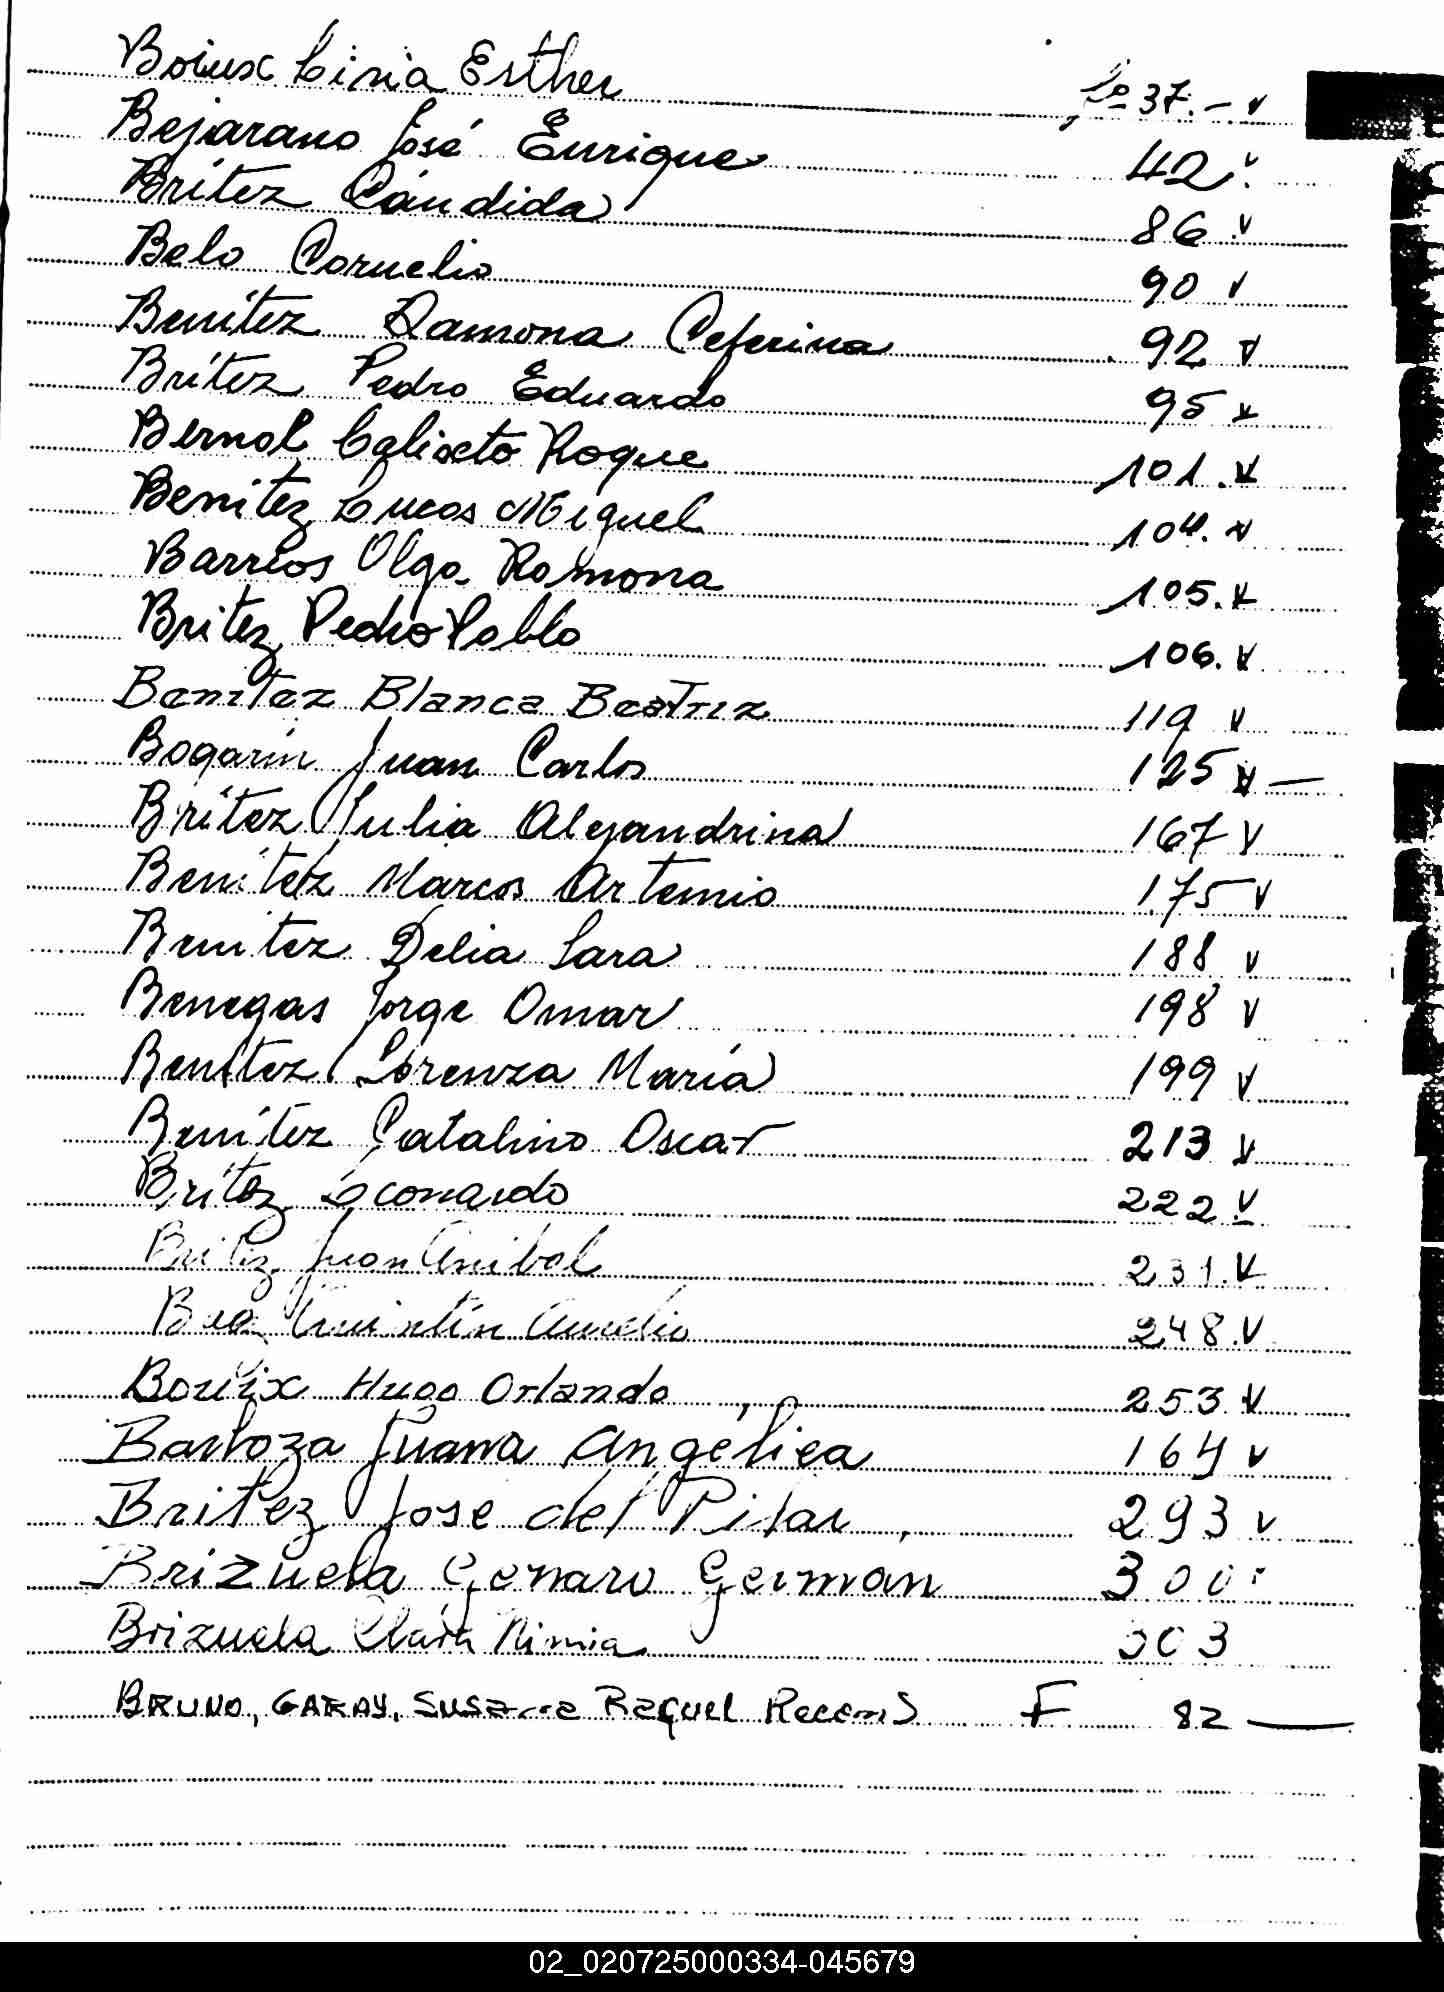 Boiux Ciria Esther Fº 37.- v
Bejarano José Enrique 42 v
Brítez Cándida 86 v
Belo Cornelio 90 v
Benítez Ramona Ceferina 92 v
Brítez Pedro Eduardo 95 v
Bernal Calixto Roque 101. v
Benitez Lucas Miguel 104. v
Barrios Olga Ramona 105. v
Britez Pedro Pablo 106. v
Benítez Blanca Beatriz 119 v
Bogarín Juan Carlos 125 v —
Brítez Julia Alejandrina 167 v
Benítez Marcos Artemio 175 v
Benítez Delia Sara 188 v
Benegas Jorge Omar 198 v
Benítez Lorenza María 199 v
Benítez Catalino Oscar 213 v
Brítez Leonardo 222 v
Britez Juan Anibal 231. v
Baez Quintín Aurelio 248. v
Bouix Hugo Orlando 253 v
Barboza Juana Angélica 164 v
Britez Jose del Pilar 293 v
Brizuela Genaro Germán 300
Brizuela Clara Nimia 303
BRUNO, GARAY, Susana Raquel Recon. F 82 —
02_020725000334-045679